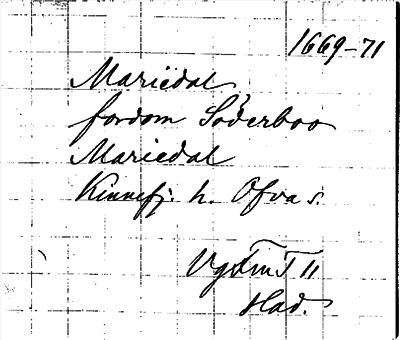 1669-71
Mariedal
fordom Söderboo
Mariedal
Kinnefj. h. Ofva s.
Vg Fm T 11
Had.